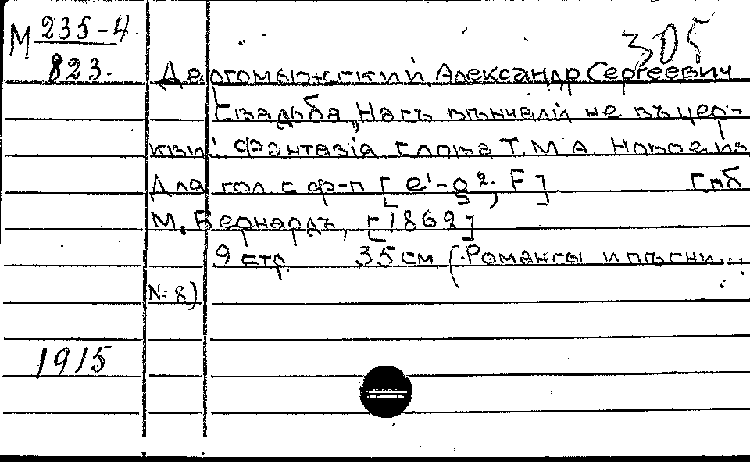 М 235-4
823.
305
Даргомыжский, Александр Сергеевич
Свадьба „Насъ вѣнчали не въ цер-
кви". Фантазія. Слова Т. М. А.
Для гол. с ф-п [e¹-g²; F] Спб
М. Бернардъ, [1869]
9 стр. 35 см (Романсы и пѣсни...
№ 8)
1915